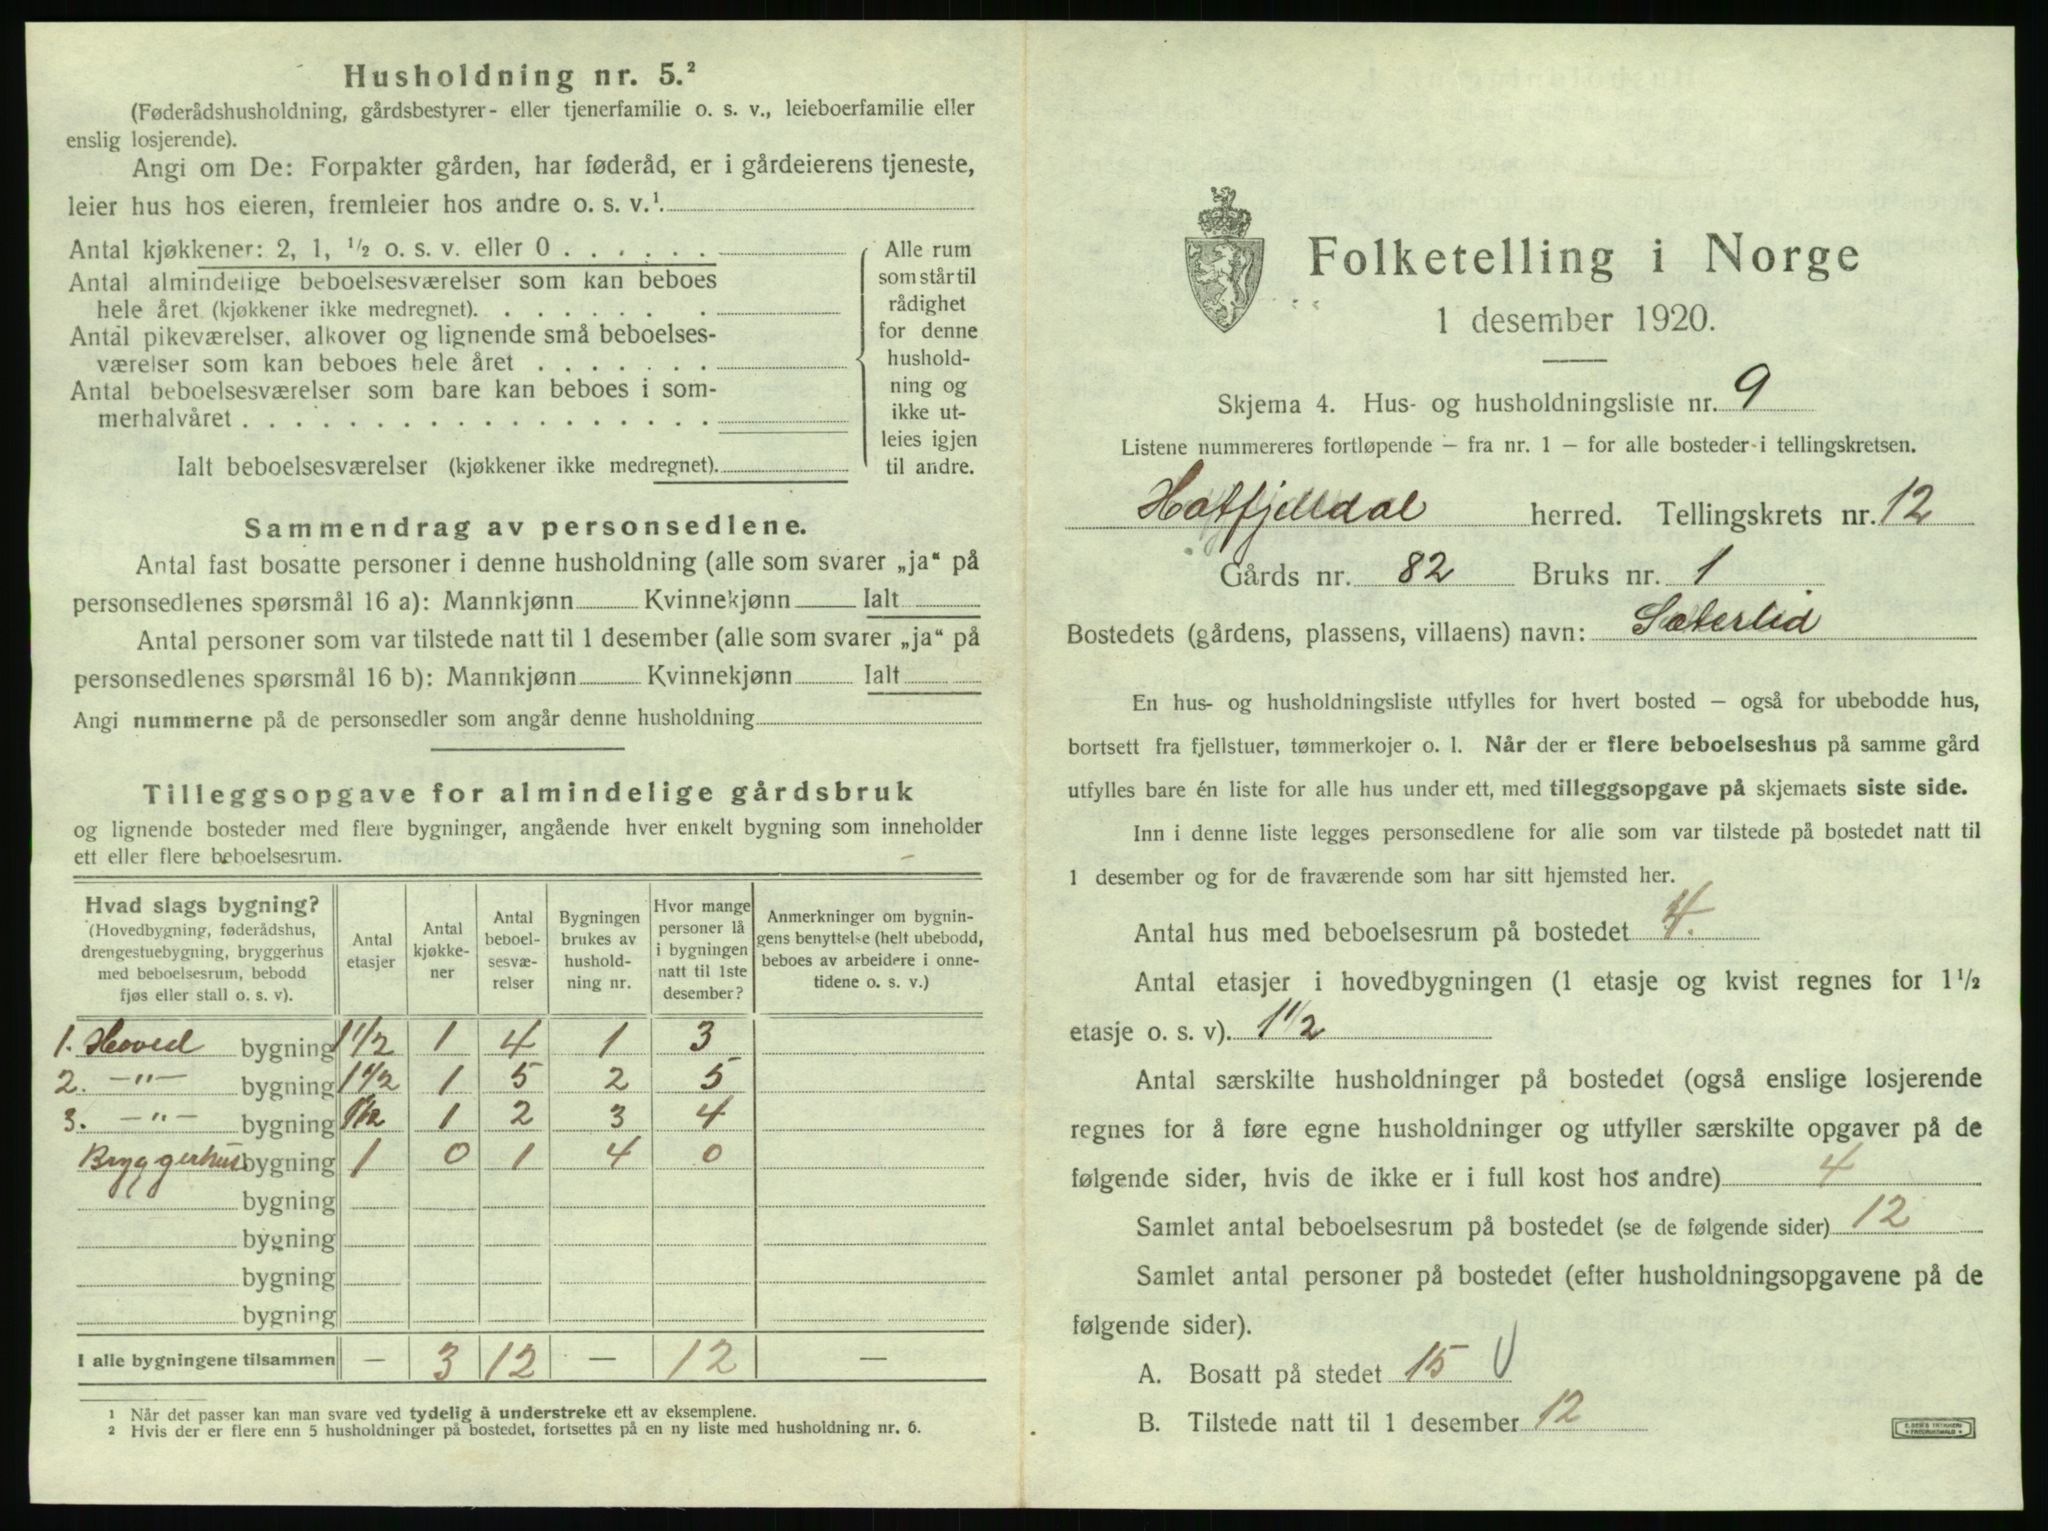 Husholdning nr. 5.²
(Føderådshusholdning, gårdsbestyrer- eller tjenerfamilie o. s. v., leieboerfamilie eller
enslig losjerende).
Angi om De: Forpakter gården, har føderåd, er i gårdeierens tjeneste,
leier hus hos eieren, fremleier hos andre o. s. v.¹
Antal kjøkkener: 2, 1, ½ o. s. v. eller 0 . . . . . .
Antal almindelige beboelsesværelser som kan beboes
hele året (kjøkkener ikke medregnet). . . . . . . .
Antal pikeværelser, alkover og lignende små beboelses-
værelser som kan beboes hele året . . . . . . .
Antal beboelsesværelser som bare kan beboes i som-
merhalvåret . . . . . . . . . . . . . . . . . .
Ialt beboelsesværelser (kjøkkener ikke medregnet).
Alle rum
som står til
rådighet
for denne
hushold-
ning og
ikke ut-
leies igjen
til andre.
Sammendrag av personsedlene.
Antal fast bosatte personer i denne husholdning (alle som svarer „ja“ på
personsedlenes spørsmål 16 a): Mannkjønn Kvinnekjønn Ialt
Antal personer som var tilstede natt til 1 desember (alle som svarer „ja“ på
personsedlenes spørsmål 16 b): Mannkjønn Kvinnekjønn Ialt
Angi nummerne på de personsedler som angår denne husholdning
Tilleggsopgave for almindelige gårdsbruk
og lignende bosteder med flere bygninger, angående hver enkelt bygning som inneholder
ett eller flere beboelsesrum.
Hvad slags bygning?
(Hovedbygning, føderådshus,
drengestuebygning, bryggerhus
med beboelsesrum, bebodd
fjøs eller stall o. s. v).
Antal
etasjer
Antal
kjøkke-
ner
Antal
beboel-
sesvæ-
relser
Bygningen
brukes av
hushold-
ning nr.
Hvor mange
personer lå
i bygningen
natt til 1ste
desember?
Anmerkninger om bygnin-
gens benyttelse (helt ubebodd,
beboes av arbeidere i onne-
tidene o. s. v.)
1. Hoved bygning 1½ 1 4 1 3
2. —"— bygning 1½ 1 5 2 5
3. —"— bygning 1½ 1 2 3 4
Bryggerhus bygning 1 0 1 4 0
bygning
bygning
bygning
bygning
I alle bygningene tilsammen — 3 12 — 12 —
¹ Når det passer kan man svare ved tydelig å understreke ett av eksemplene.
² Hvis der er flere enn 5 husholdninger på bostedet, fortsettes på en ny liste med husholdning nr. 6.
Folketelling i Norge
1 desember 1920.
Skjema 4. Hus- og husholdningsliste nr. 9
Listene nummereres fortløpende — fra nr. 1 — for alle bosteder i tellingskretsen.
Hatfjelldal herred. Tellingskrets nr. 12
Gårds nr. 82 Bruks nr. 1
Bostedets (gårdens, plassens, villaens) navn: Sæterlid
En hus- og husholdningsliste utfylles for hvert bosted — også for ubebodde hus,
bortsett fra fjellstuer, tømmerkojer o. l. Når der er flere beboelseshus på samme gård
utfylles bare én liste for alle hus under ett, med tilleggsopgave på skjemaets siste side.
Inn i denne liste legges personsedlene for alle som var tilstede på bostedet natt til
1 desember og for de fraværende som har sitt hjemsted her.
Antal hus med beboelsesrum på bostedet 4.
Antal etasjer i hovedbygningen (1 etasje og kvist regnes for 1½
etasje o. s. v). 1½
Antal særskilte husholdninger på bostedet (også enslige losjerende
regnes for å føre egne husholdninger og utfyller særskilte opgaver på de
følgende sider, hvis de ikke er i full kost hos andre) 4
Samlet antal beboelsesrum på bostedet (se de følgende sider) 12
Samlet antal personer på bostedet (efter husholdningsopgavene på de
følgende sider).
A. Bosatt på stedet 15 V
B. Tilstede natt til 1 desember 12